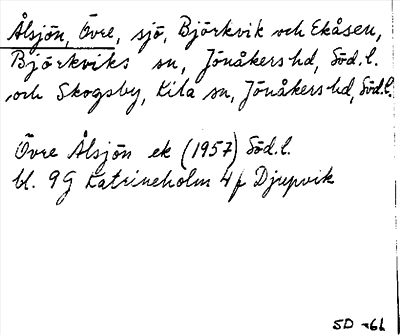 Ålsjön, Övre, sjö, Björkvik och Ekåsen,
Björkviks sn, Jönåkers hd, Söd. l.
och Skogsby, Kila sn, Jönåkers hd, Söd. l.
Övre Ålsjön ek (1957) Söd. l.
bl. 9G Katrineholm 4f Djupvik
SD -66